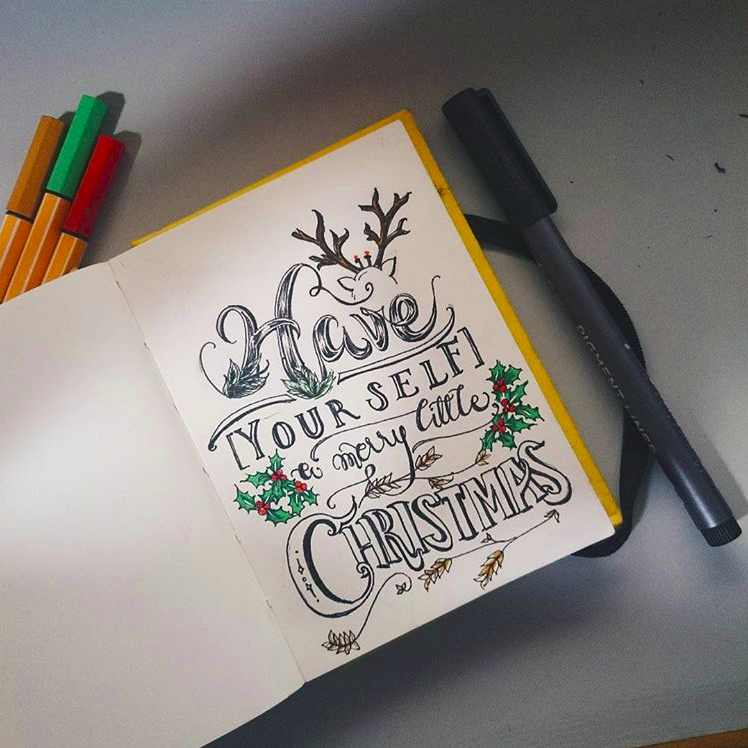 Have
[YOURSELF]
a merry little
CHRISTMAS
PIGMENT LINER